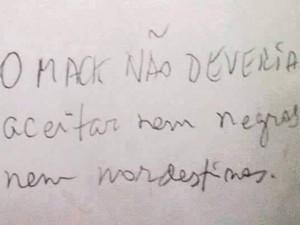 O MACK NÃO DEVERIA
aceitar nem negros
nem nordestinos.